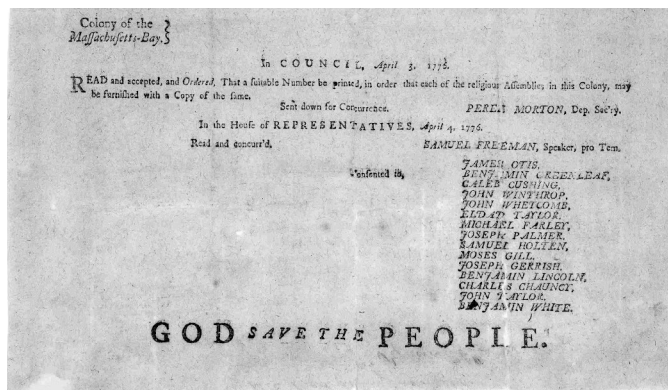 Colony of the
Maſſachuſetts-Bay.
In COUNCIL, April 3, 1776.
READ and accepted, and Ordered, That a ſuitable Number be printed, in order that each of the religious Aſſemblies in this Colony, may
be furniſhed with a Copy of the ſame.
Sent down for Concurrence.
PEREZ MORTON, Dep. Sec'ry.
In the Houſe of REPRESENTATIVES, April 4, 1776.
Read and concurr'd,
SAMUEL FREEMAN, Speaker, pro Tem.
Conſented to,
JAMES OTIS,
BENJAMIN GREENLEAF,
CALEB CUSHING,
JOHN WINTHROP,
JOHN WHETCOMB,
ELDAD TAYLOR,
MICHAEL FARLEY,
JOSEPH PALMER,
SAMUEL HOLTEN,
MOSES GILL,
JOSEPH GERRISH,
BENJAMIN LINCOLN,
CHARLES CHAUNCY,
JOHN TAYLOR,
BENJAMIN WHITE.
GOD SAVE THE PEOPLE.